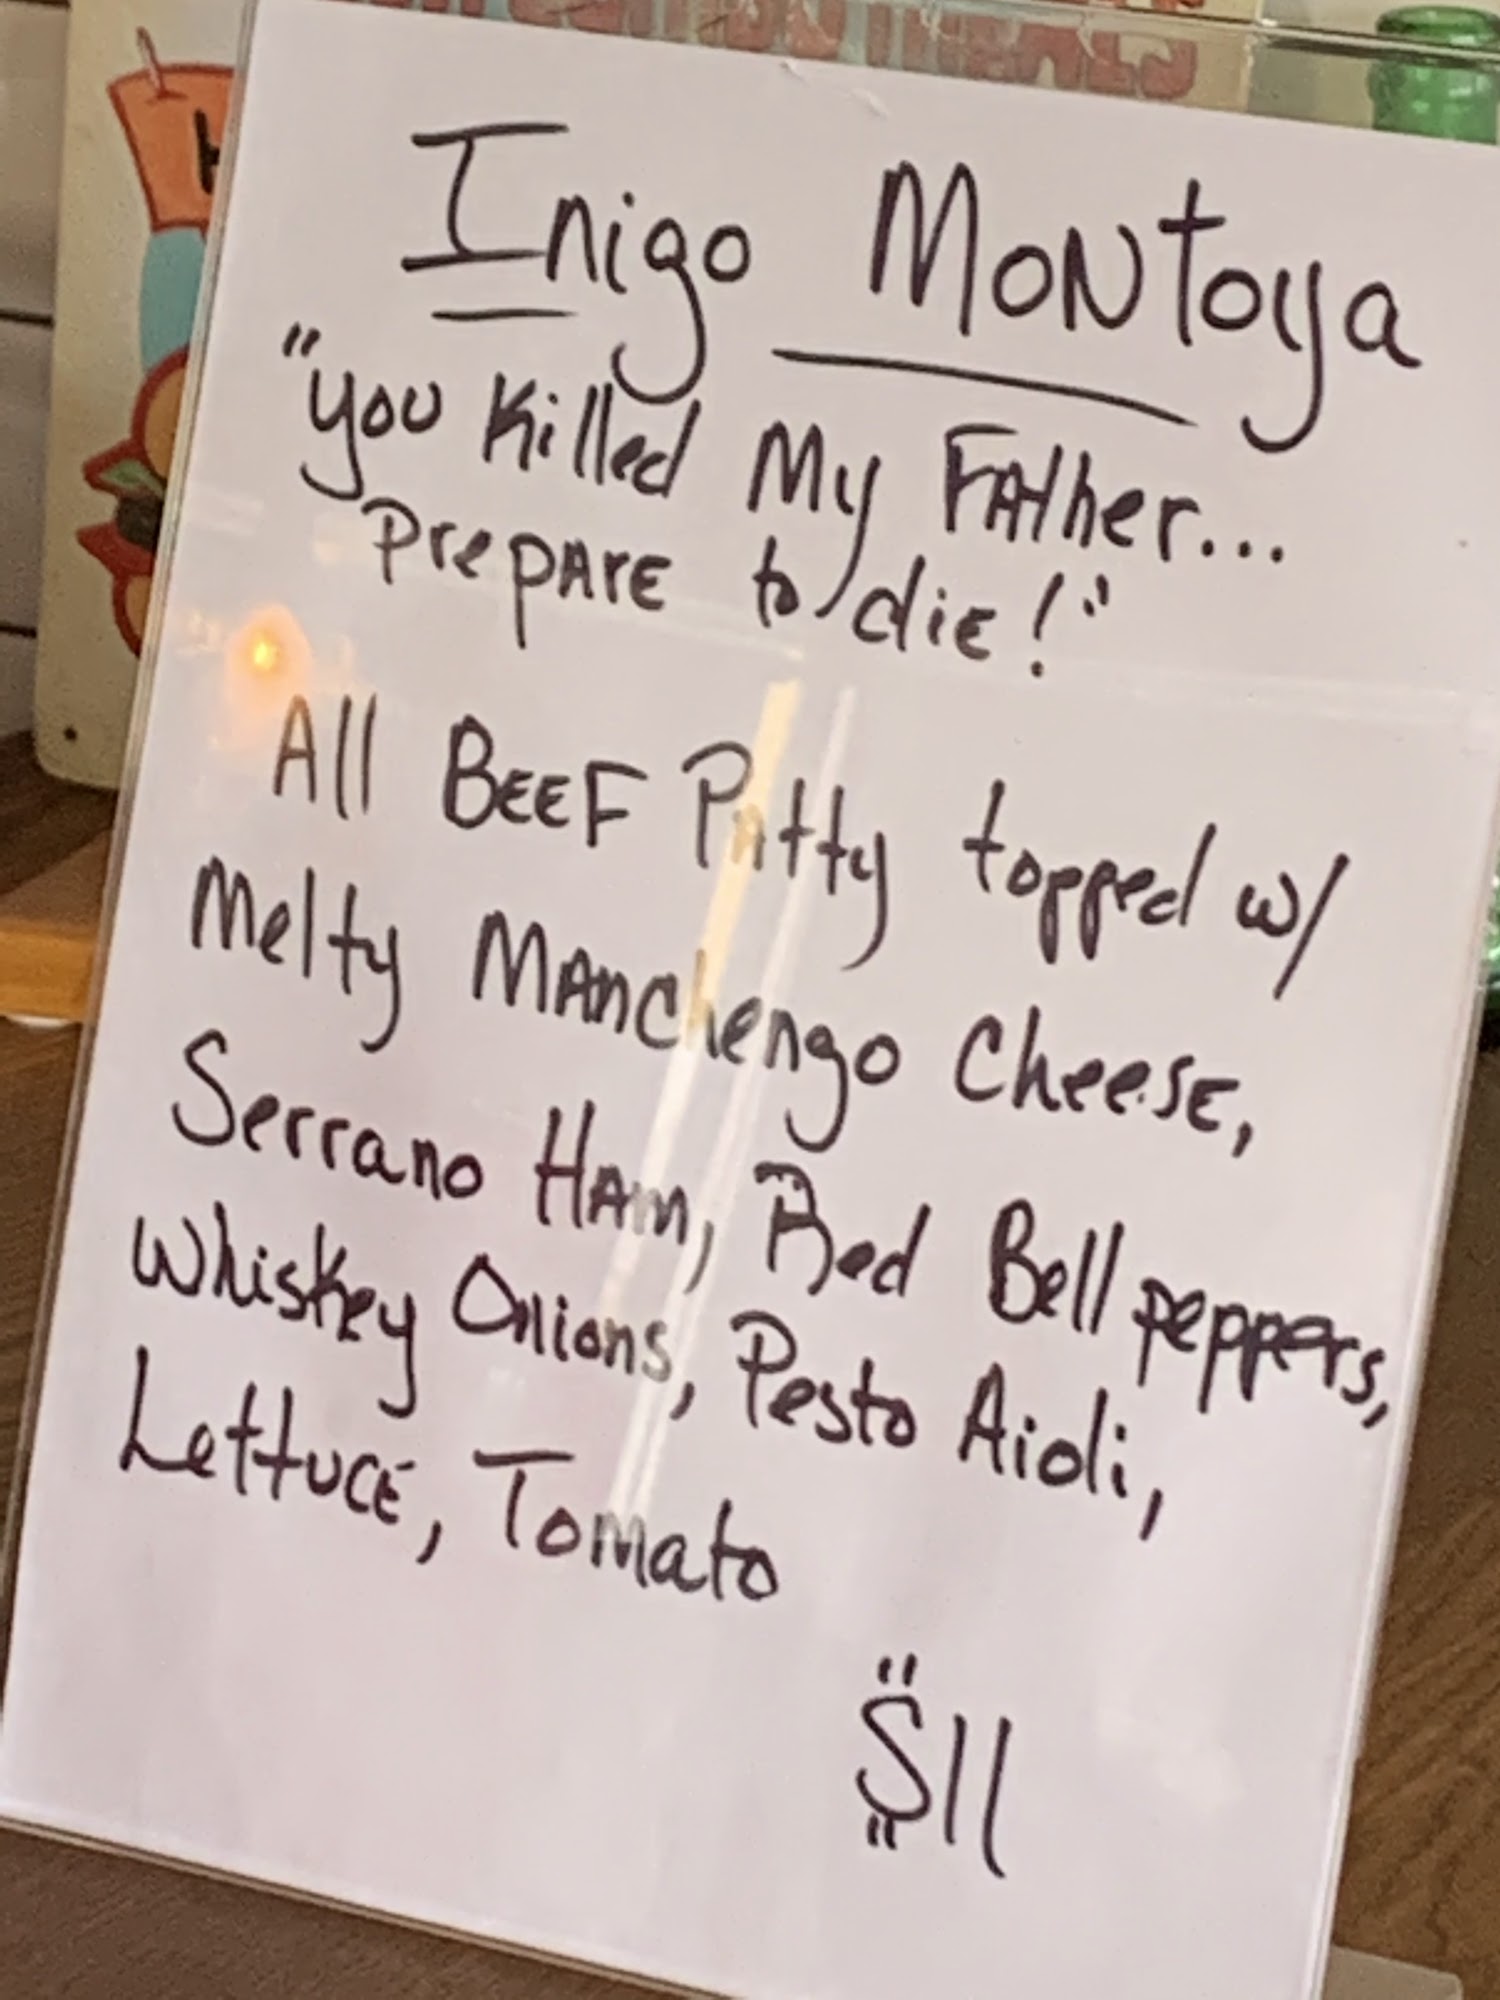 Inigo Montoya
"You Killed My Father...
Prepare to die!"
All Beef Patty topped w/
Melty Manchengo Cheese,
Serrano Ham, Red Bell peppers,
Whiskey Onions, Pesto Aioli,
Lettuce, Tomato
$11